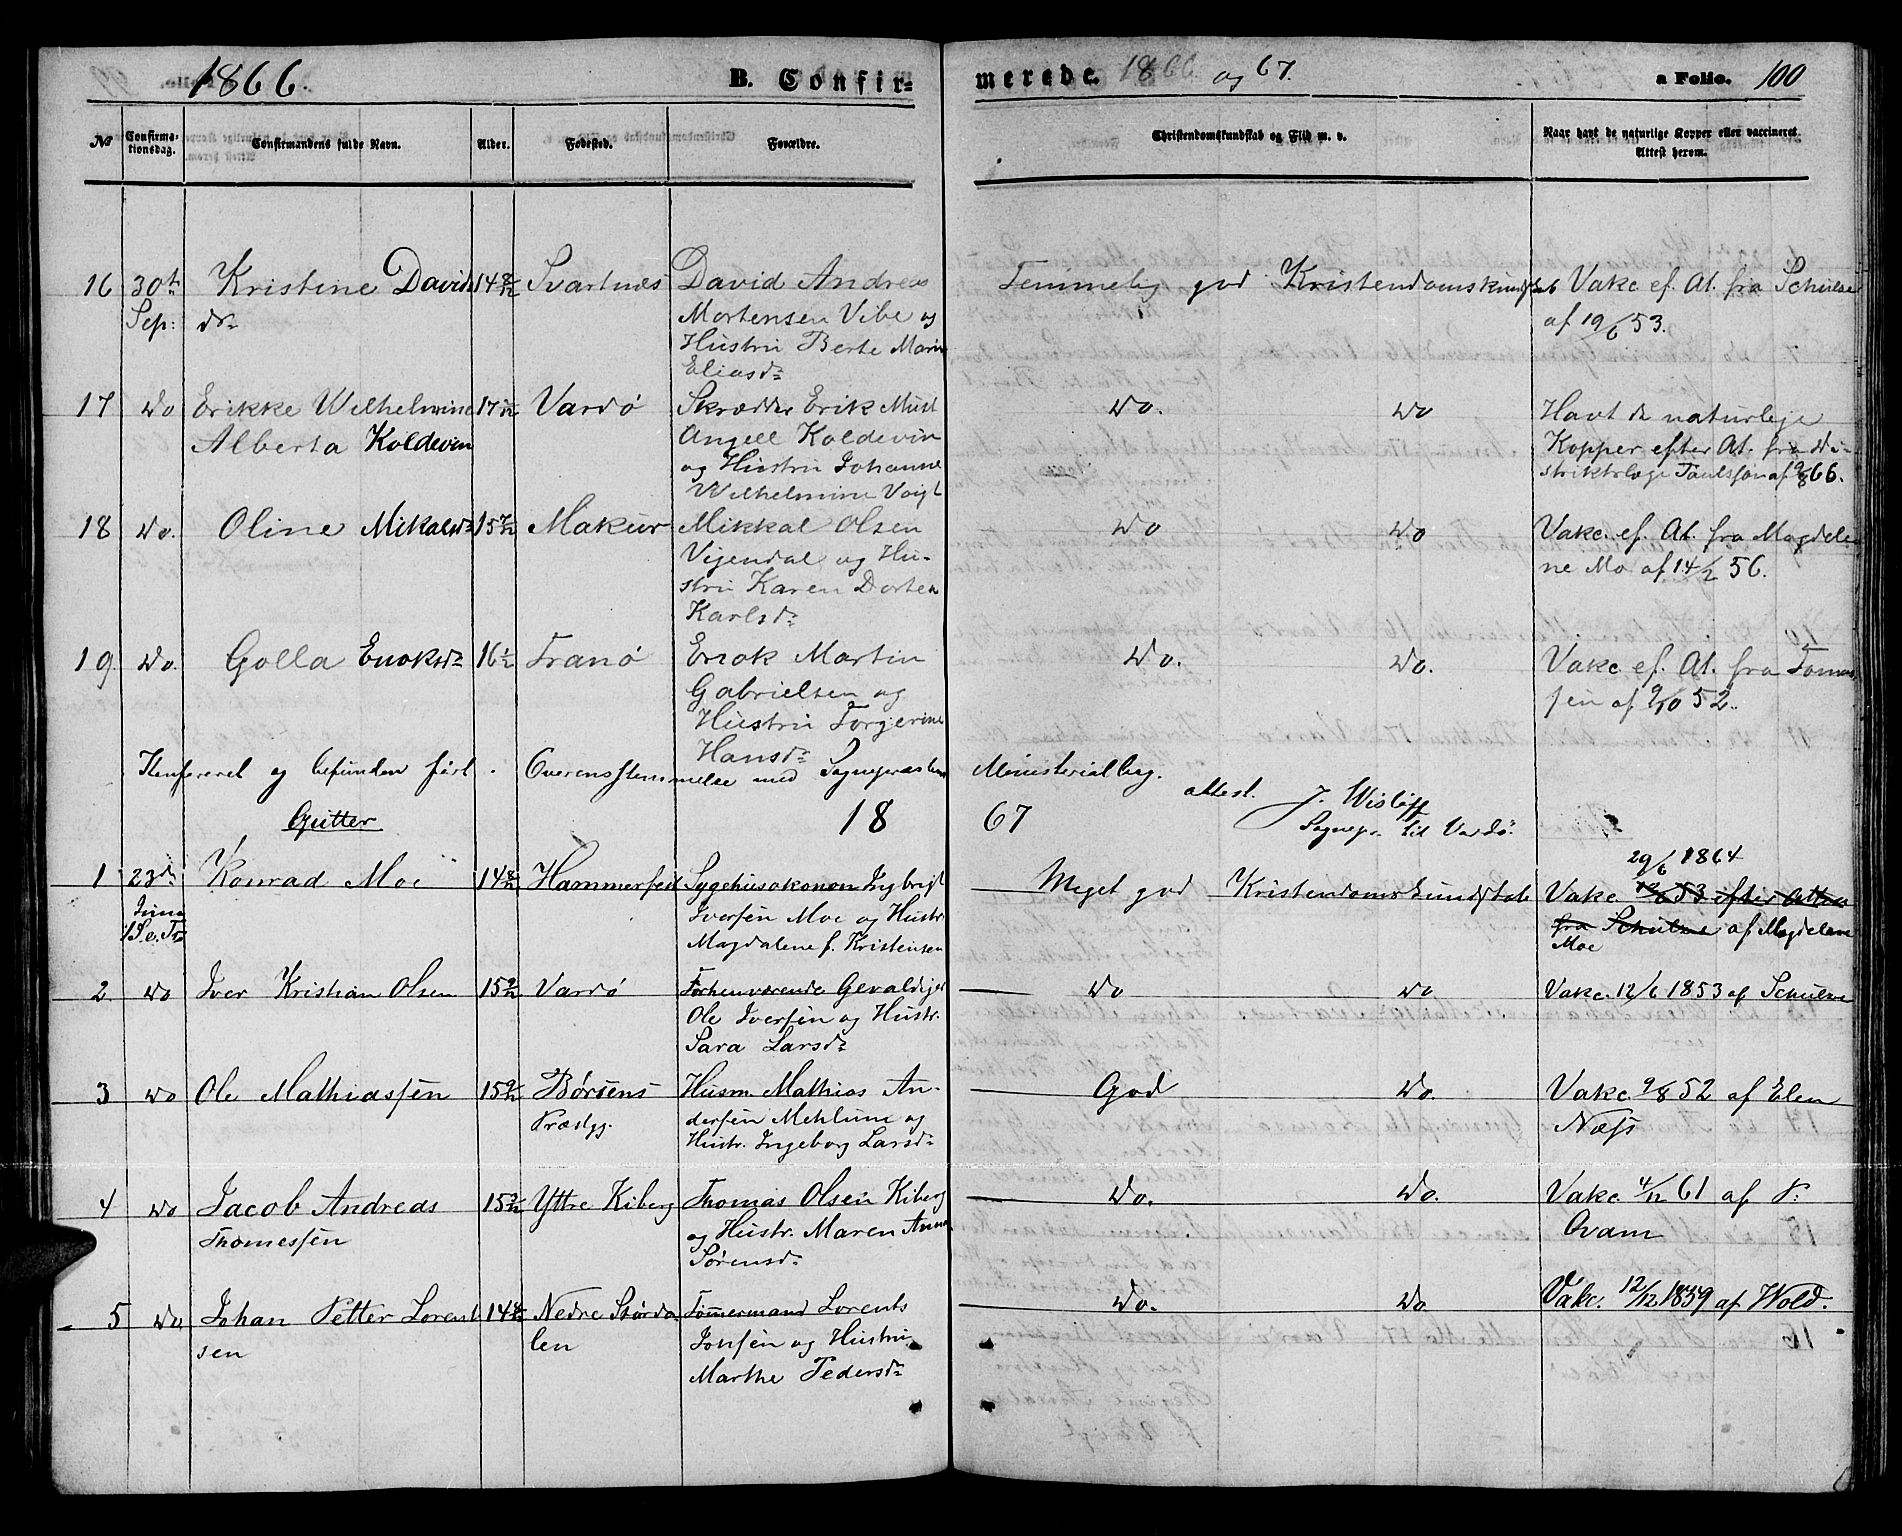 1866.
B. Confirmerede. 1866 og 67.
a Folio. 100
No
Confirmationsdag.
Confirmandens fulde Navn.
Alder.
Fødested.
Forældre.
Christendomskundskab og Flid m. v.
Naar havt de naturlige Kopper eller vaccineret. Attest herom.
16 30te Sep: Kristine Davidsdr 14 8/12 Svartnæs
David Andreas
Mortensen Vibe og
Hustru Berte Marie
Eliasdr
Temmelig god Kristendomskundskab
Vakc. ef. At. fra Schulze
af 19/6 53.
17 Do Erikke Wilhelmine
Alberta Koldevin
17 Vardø
Skrædder Erik Must
Angell Koldevin
og Hustru Johanne
Wilhelmine Voigt
Do. Do
Havt de naturlige
Kopper efter At. fra Di-
striktslæge af 9/8 66.
18 Do. Oline Mikalsdr 15 Makur
Mikkal Olsen
Vigendal og Hu-
stru Karen Dortea
Karlsdr
Do Do
Vakc. ef. At. fra Magdele
ne Mo af 14/2 56.
19 Do. Golla Enoksdr 16 1/2 Tranø
Enok Martin
Gabrielsen og
Hustru Torgerine
Hansdr
Do. Do.
Vakc ef. At. fra
sen af 9/10 52.
Konfereret og befunden ført i Overensstemmelse med Sognepræstens Ministerialbog.
attest. J. Wisløff
Sognepr. til Vardø.
Gutter
1867
1 23de Juni Konrad Moe 14 8/12 Hammerfest
Sygehusøkonom Ingbrigt
Iversen Moe og Hustr.
Magdalene f. Kristensen
Meget god Kristendomskundskab
29/6 1864
Vakc 12/6 53 efter Attest
fra Schulze af Magdelene
Moe
2 Do Iver Kristian Olsen 15 9/12 Vardø
Forhenværende Gevaldiger
Ole Iversen og Hustr.
Sara Larsdr
Do Do
Vakc. 12/6 1853 af Schulze
3 Do Ole Mathiassen 15 9/12 Børsens
Præstgj.
Husm. Mathias An-
dersen Mehlum og
Hustr. Ingeborg Larsdr
God Do.
Vakc 9/8 52 af Elen
Næss
4 Do Jacob Andreas
Thomessen
15 Yttre Kiberg
Thomas Olsen Kiberg
og Hustr. Maren Anna
Sørensdr
Do. Do.
Vakc 4/12 61 af P:
Qvam
5 Do Johan Petter Lorent
sen
14 8/12 Nedre Størda
len
Tømmermand Lorents
Jonsen og Hustru
Marthe Pedersdr
Do. Do
Vakc. 12/12 1859 af Wold.